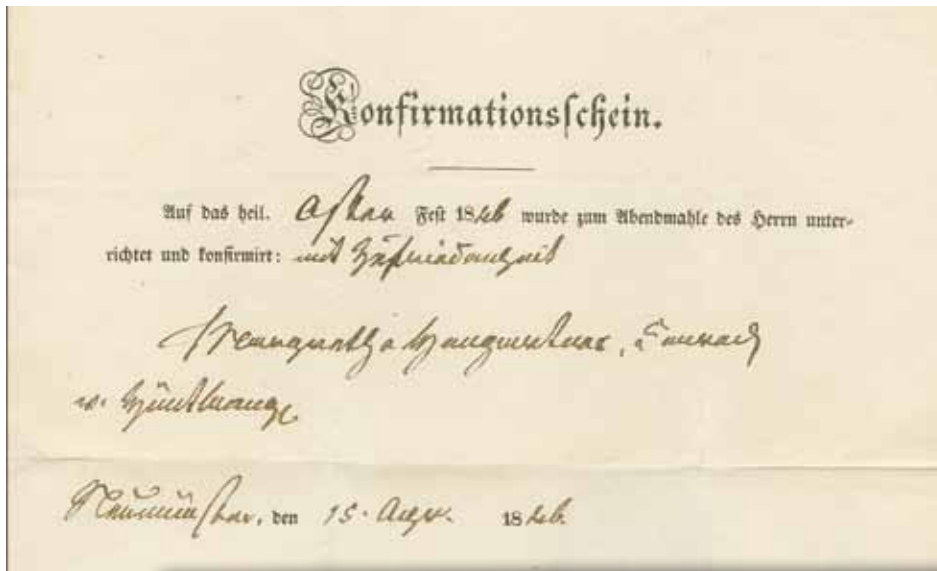 Konfirmationsschein.
Auf das heil. Oster Fest 1846 wurde zum Abendmahle des Herrn unter-
richtet und konfirmirt: mit Zufriedenheit
Neumünster, den 15. Apr. 1846